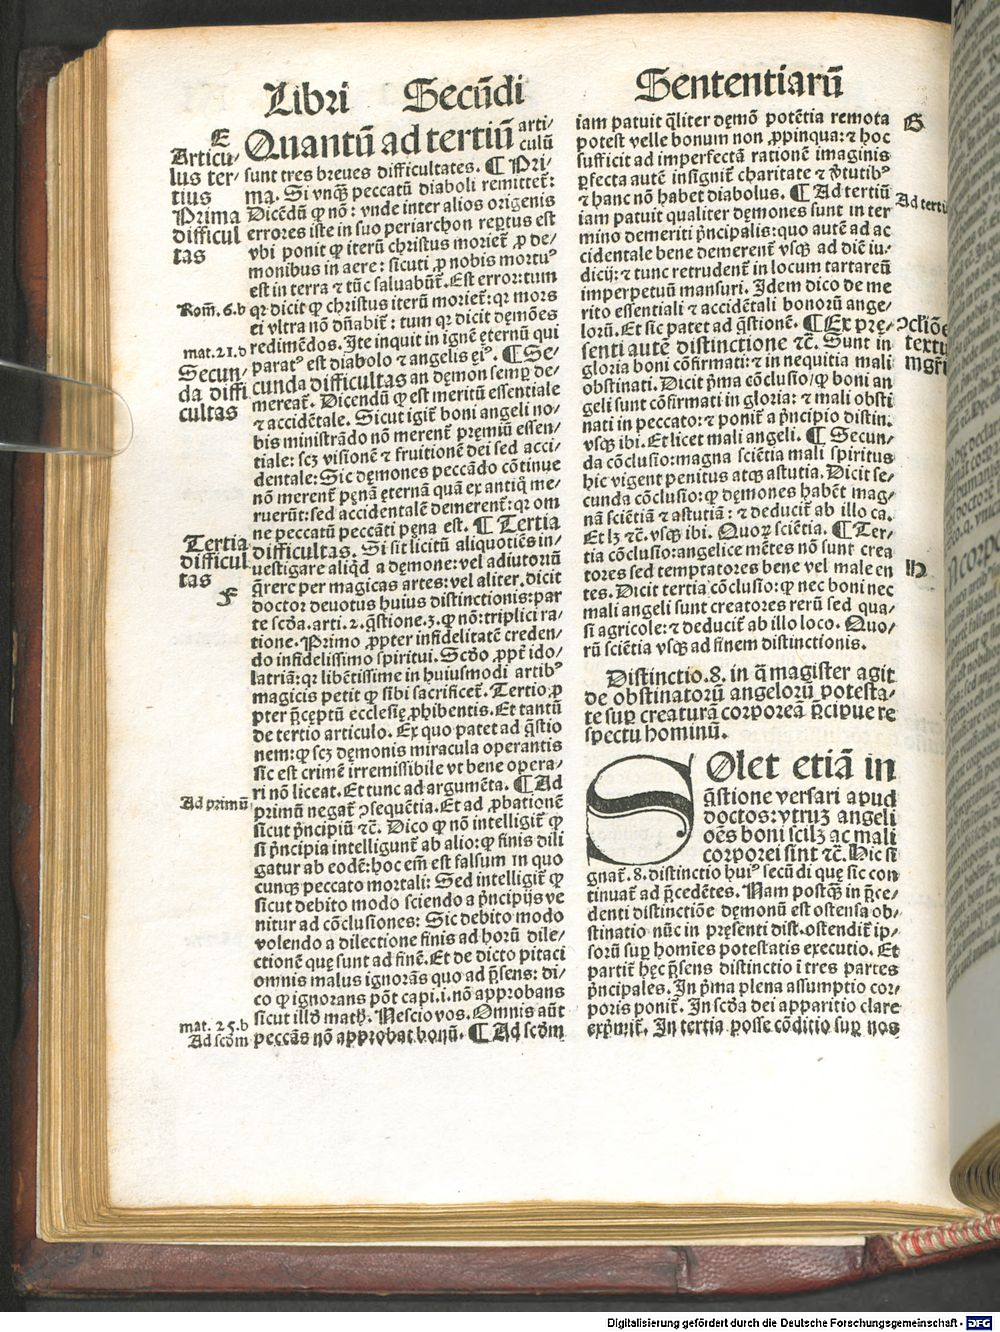 Libri Secūdi
Sententiarū
E
Articu⸗
lus ter⸗
tius
Prima
difficul
tas
Rom̄. 6. b
mat. 21. d
Secun⸗
da diffi
cultas
Tertia
difficul
tas
F
Ad primū
mat. 25. b
Ad scd̄m
Quantū ad tertiū arti⸗
culū
sunt tres breues difficultates. ¶ Pri⸗
ma. Si vnqȝ peccatū diaboli remittet̄:
Dicēdū ꝙ nō: vnde inter alios origenis
errores iste in suo periarchon reꝑtus est
vbi ponit ꝙ iterū christus moriet̄ ꝓ de⸗
monibus in aere: sicuti ꝓ nobis mortuꝰ
est in terra ⁊ tūc saluabūt̄. Est error: tum
qꝛ dicit ꝙ christus iterū moriet̄: qꝛ mors
ei vltra nō dn̄abit̄: tum qꝛ dicit dęmōes
redimēdos. Ite inquit in ignē ęternū qui
paratꝰ est diabolo ⁊ angelis eiꝰ. ¶ Se⸗
cunda difficultas an dęmon semꝑ de⸗
mereat̄. Dicendū ꝙ est meritū essentiale
⁊ accidētale. Sicut igit̄ boni angeli no⸗
bis ministrādo nō merent̄ pręmiū essen⸗
tiale: scȝ visionē ⁊ fruitionē dei sed acci⸗
dentale: Sic dęmones peccādo cōtinue
nō merent̄ pęnā ęternā quā ex antiq̄ me⸗
ruerūt: sed accidentalē demerent̄: qꝛ om
ne peccatū peccāti pęna est. ¶ Tertia
difficultas. Si sit licitū aliquoties in⸗
uestigare aliqd̄ a dęmone: vel adiutoriū
q̄rere per magicas artes: vel aliter. dicit
doctor deuotus huius distinctionis: par
te scd̄a. arti. 2. q̄stione. 3. ꝙ nō: triplici ra⸗
tione. Primo ꝓpter infidelitatē creden⸗
do infidelissimo spiritui. Scd̄o ꝓpt̄ ido⸗
latriā: qꝛ libētissime in huiusmodi artibꝰ
magicis petit ꝙ sibi sacrificet̄. Tertio ꝓ
pter p̄ceptū ecclesię ꝓhibentis. Et tantū
de tertio articulo. Ex quo patet ad q̄stio
nem: ꝙ scȝ dęmonis miracula operantis
sic est crimē irremissibile vt bene opera⸗
ri nō liceat. Et tunc ad argumēta. ¶ Ad
primū negat̄ ꝯsequētia. Et ad ꝓbationē
sicut p̄ncipiū ⁊c̄. Dico ꝙ nō intelligit̄ ꝙ
si p̄ncipia intelligunt̄ ab alio: ꝙ finis dili
gatur ab eodē: hoc em̄ est falsum in quo
cunqȝ peccato mortali: Sed intelligit̄ ꝙ
sicut debito modo sciendo a p̄ncipijs ve
nitur ad cōclusiones: Sic debito modo
volendo a dilectione finis ad horū dile⸗
ctionē quę sunt ad finē. Et de dicto pitaci
omnis malus ignorās quo ad p̄sens: di⸗
co ꝙ ignorans pōt capi. i. nō approbans
sicut illd̄ math̄. Nescio vos. Omnis aūt
peccās nō approbat bonū. ¶ Ad scd̄m
iam patuit q̄liter dęmō potētia remota
potest velle bonum non ꝓpinqua: ⁊ hoc
sufficit ad imperfectā rationē imaginis
ꝑfecta autē insignit̄ charitate ⁊ v̄tutibꝰ
⁊ hanc nō habet diabolus. ¶ Ad tertiū
iam patuit qualiter dęmones sunt in ter
mino demeriti p̄ncipalis: quo autē ad ac
cidentale bene demerent̄ vsqȝ ad diē iu⸗
dicij: ⁊ tunc retrudent̄ in locum tartareū
imperpetuū mansuri. Idem dico de me
rito essentiali ⁊ accidētali bonorū ange⸗
lorū. Et sic patet ad q̄stionē. ¶ Ex prę⸗
senti autē distinctione ⁊c̄. Sunt in
gloria boni cōfirmati: ⁊ in nequitia mali
obstinati. Dicit p̄ma cōclusio/ ꝙ boni an
geli sunt cōfirmati in gloria: ⁊ mali obsti
nati in peccato: ⁊ ponit̄ a p̄ncipio distin.
vsqȝ ibi. Et licet mali angeli. ¶ Secun⸗
da cōclusio: magna sciētia mali spiritus
hic vigent penitus atqȝ astutia. Dicit se⸗
cunda cōclusio: ꝙ dęmones habēt mag⸗
nā sciētiā ⁊ astutiā: ⁊ deducit̄ ab illo ca.
Et lȝ ⁊c̄. vsqȝ ibi. Quoꝝ sciētia. ¶ Ter⸗
tia cōclusio: angelice mētes nō sunt crea
tores sed temptatores bene vel male en
tes. Dicit tertia cōclusio: ꝙ nec boni nec
mali angeli sunt creatores rerū sed qua⸗
si agricole: ⁊ deducit̄ ab illo loco. Quo⸗
rū sciētia vsqȝ ad finem distinctionis.
Distinctio. 8. in q̄ magister agit
de obstinatorū angelorū potesta⸗
te suꝑ creaturā corporeā p̄cipue re
spectu hominū.
SOlet etiā in
q̄stione versari apud
doctos: vtruȝ angeli
oēs boni scilȝ ac mali
corporei sint ⁊c̄. Hic si
gnat̄. 8. distinctio huiꝰ secūdi quę sic con
tinuat̄ ad p̄cedētes. Nam postqȝ in p̄ce⸗
denti distinctiōe dęmonū est ostensa ob⸗
stinatio nūc in pręsenti dist. ostendit̄ ip⸗
sorū suꝑ homīes potestatis executio. Et
partit̄ hęc p̄sens distinctio ī tres partes
p̄ncipales. In p̄ma plena assumptio cor⸗
poris ponit̄. In scd̄a dei apparitio clare
exp̄mit̄. In tertia posse cōditio suꝑ nos
G
Ad tertiū
ꝯclōe
textu
mgr̄i
H
Digitalisierung gefördert durch die Deutsche Forschungsgemeinschaft - DFG